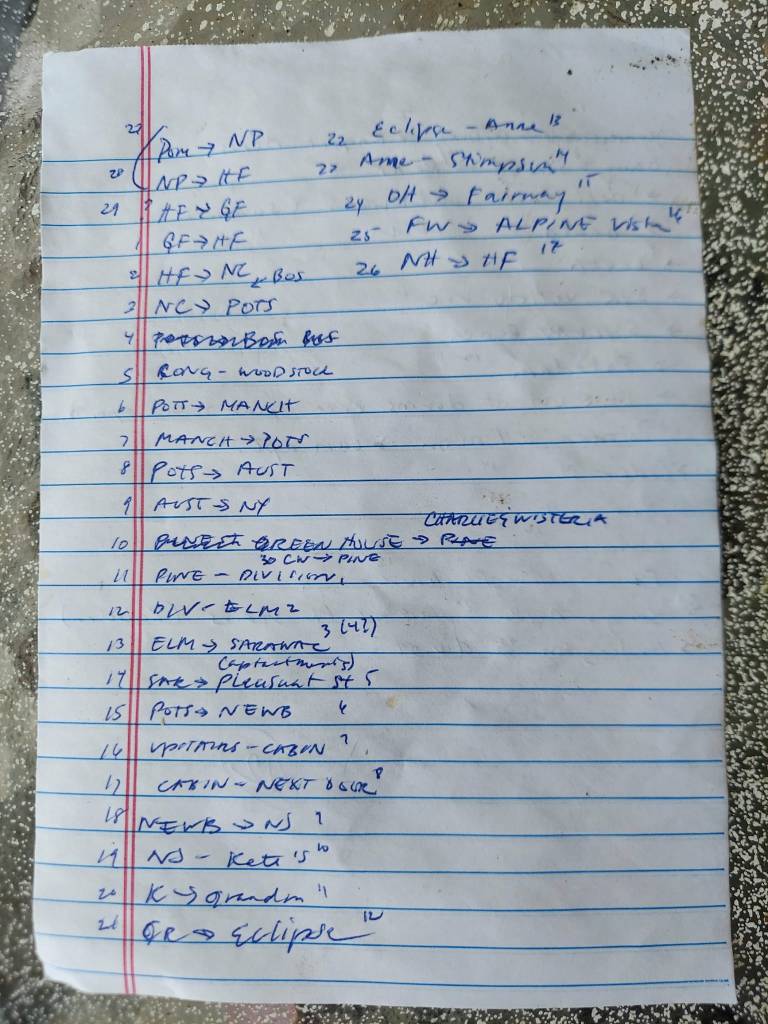 27 Pom → NP
28 NP → HF
29 HF → GF
1 GF → HF
2 HF → NC ← BOS
3 NC → POTS
4
5 RONG - WOODSTOCK
6 POTS → MANCH
7 MANCH → POTS
8 POTS → AUST
9 AUST → NY
CHARLIE & WISTERIA
10 GREEN HOUSE → PINE
30 CW → PINE
11 PINE - DIVISION 1
12 DIV - ELM 2
13 ELM → SARANAC 3 (4?)
(apartments)
14 SAR → Pleasant St 5
15 POTS → NEWB 6
16 UPSTAIRS - CABIN 7
17 CABIN - NEXT DOOR 8
18 NEWB → NJ 9
19 NJ - Kate's 10
20 K → grandm 11
21 GR → Eclipse 12
22 Eclipse - Anne 13
23 Anne - Stimpson 14
24 OH → Fairway 15
25 FW → ALPINE Vista 16
26 NH → HF 17